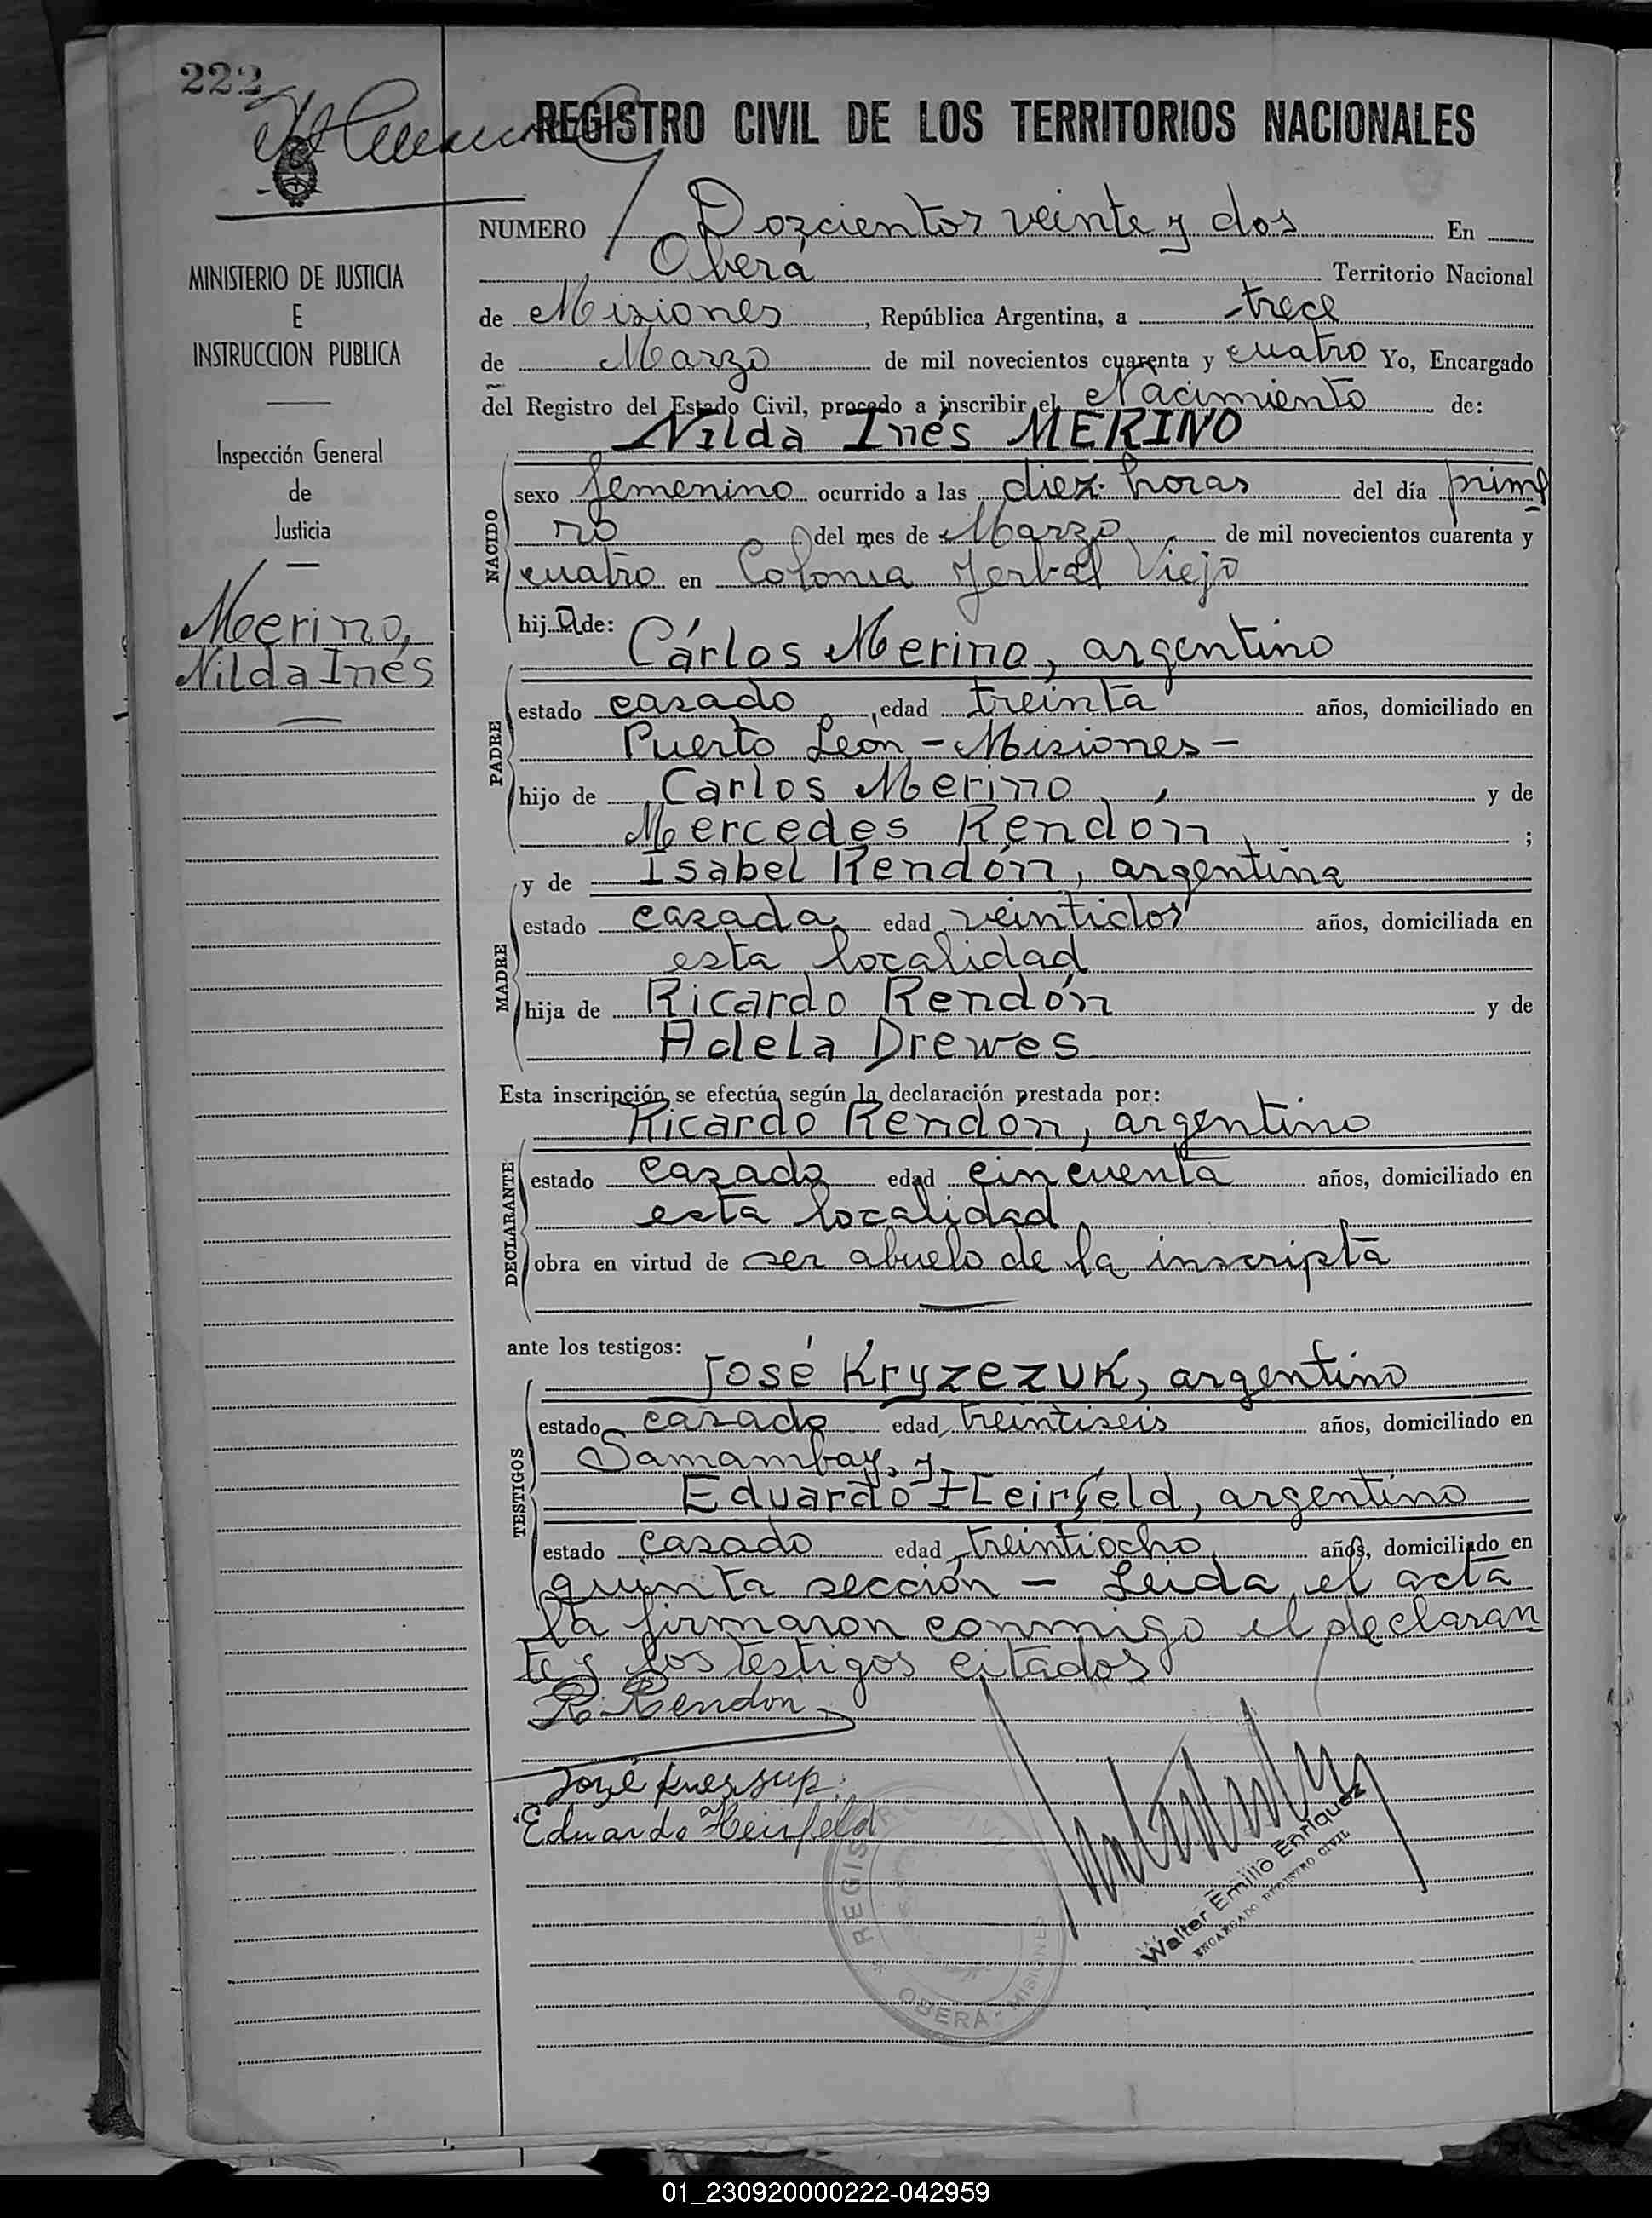 222
REGISTRO CIVIL DE LOS TERRITORIOS NACIONALES
NUMERO Dozcientos veinte y dos En
Oberá Territorio Nacional
de Misiones, República Argentina, a trece
de Marzo de mil novecientos cuarenta y cuatro Yo, Encargado
del Registro del Estado Civil, procedo a inscribir el Nacimiento de:
Nilda Inés MERINO
NACIDO
sexo femenino ocurrido a las diez horas del día prime
ro del mes de Marzo de mil novecientos cuarenta y
cuatro en Colonia Yerbal Viejo
hija de:
Cárlos Merino, argentino
PADRE
estado casado, edad treinta años, domiciliado en
Puerto León - Misiones -
hijo de Carlos Merino y de
Mercedes Rendón ;
y de Isabel Rendón, argentina
MADRE
estado casada edad veintidos años, domiciliada en
esta localidad
hija de Ricardo Rendón y de
Adela Drewes
Esta inscripción se efectúa según la declaración prestada por:
Ricardo Rendon, argentino
DECLARANTE
estado casado edad cincuenta años, domiciliado en
esta localidad
obra en virtud de ser abuelo de la inscripta
ante los testigos:
José Kryzezuk, argentino
TESTIGOS
estado casado edad treintiseis años, domiciliado en
Samambay, y
Eduardo Heinfeld, argentino
estado casado edad treintiocho años, domiciliado en
quinta sección - Leida el acta
la firmaron conmigo el declaran
te y los testigos citados
R. Rendon
José
Eduardo Heinfeld
Walter Emilio Enriquez
ENCARGADO REGISTRO CIVIL
REGISTRO CIVIL
OBERÁ - MISIONES
MINISTERIO DE JUSTICIA
E
INSTRUCCION PUBLICA
Inspección General
de
Justicia
Merino,
Nilda Inés
01_230920000222-042959